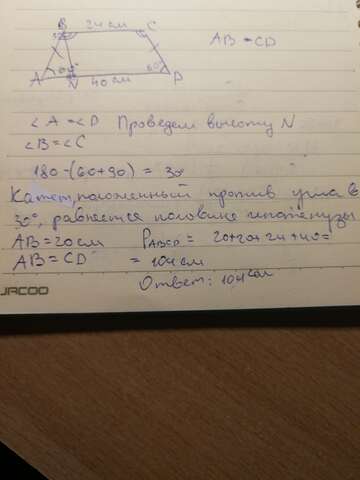 B 24 см C
AB = CD
60° 60°
A N 40 см D
∠A = ∠D Проведем высоту N
∠B = ∠C
180-(60+90) = 30
Катет, положенный против угла в
30°, равняется половине гипотенузы
AB = 20 см P ABCD = 20+20+24+40=
AB = CD = 104 см
Ответ: 104 см